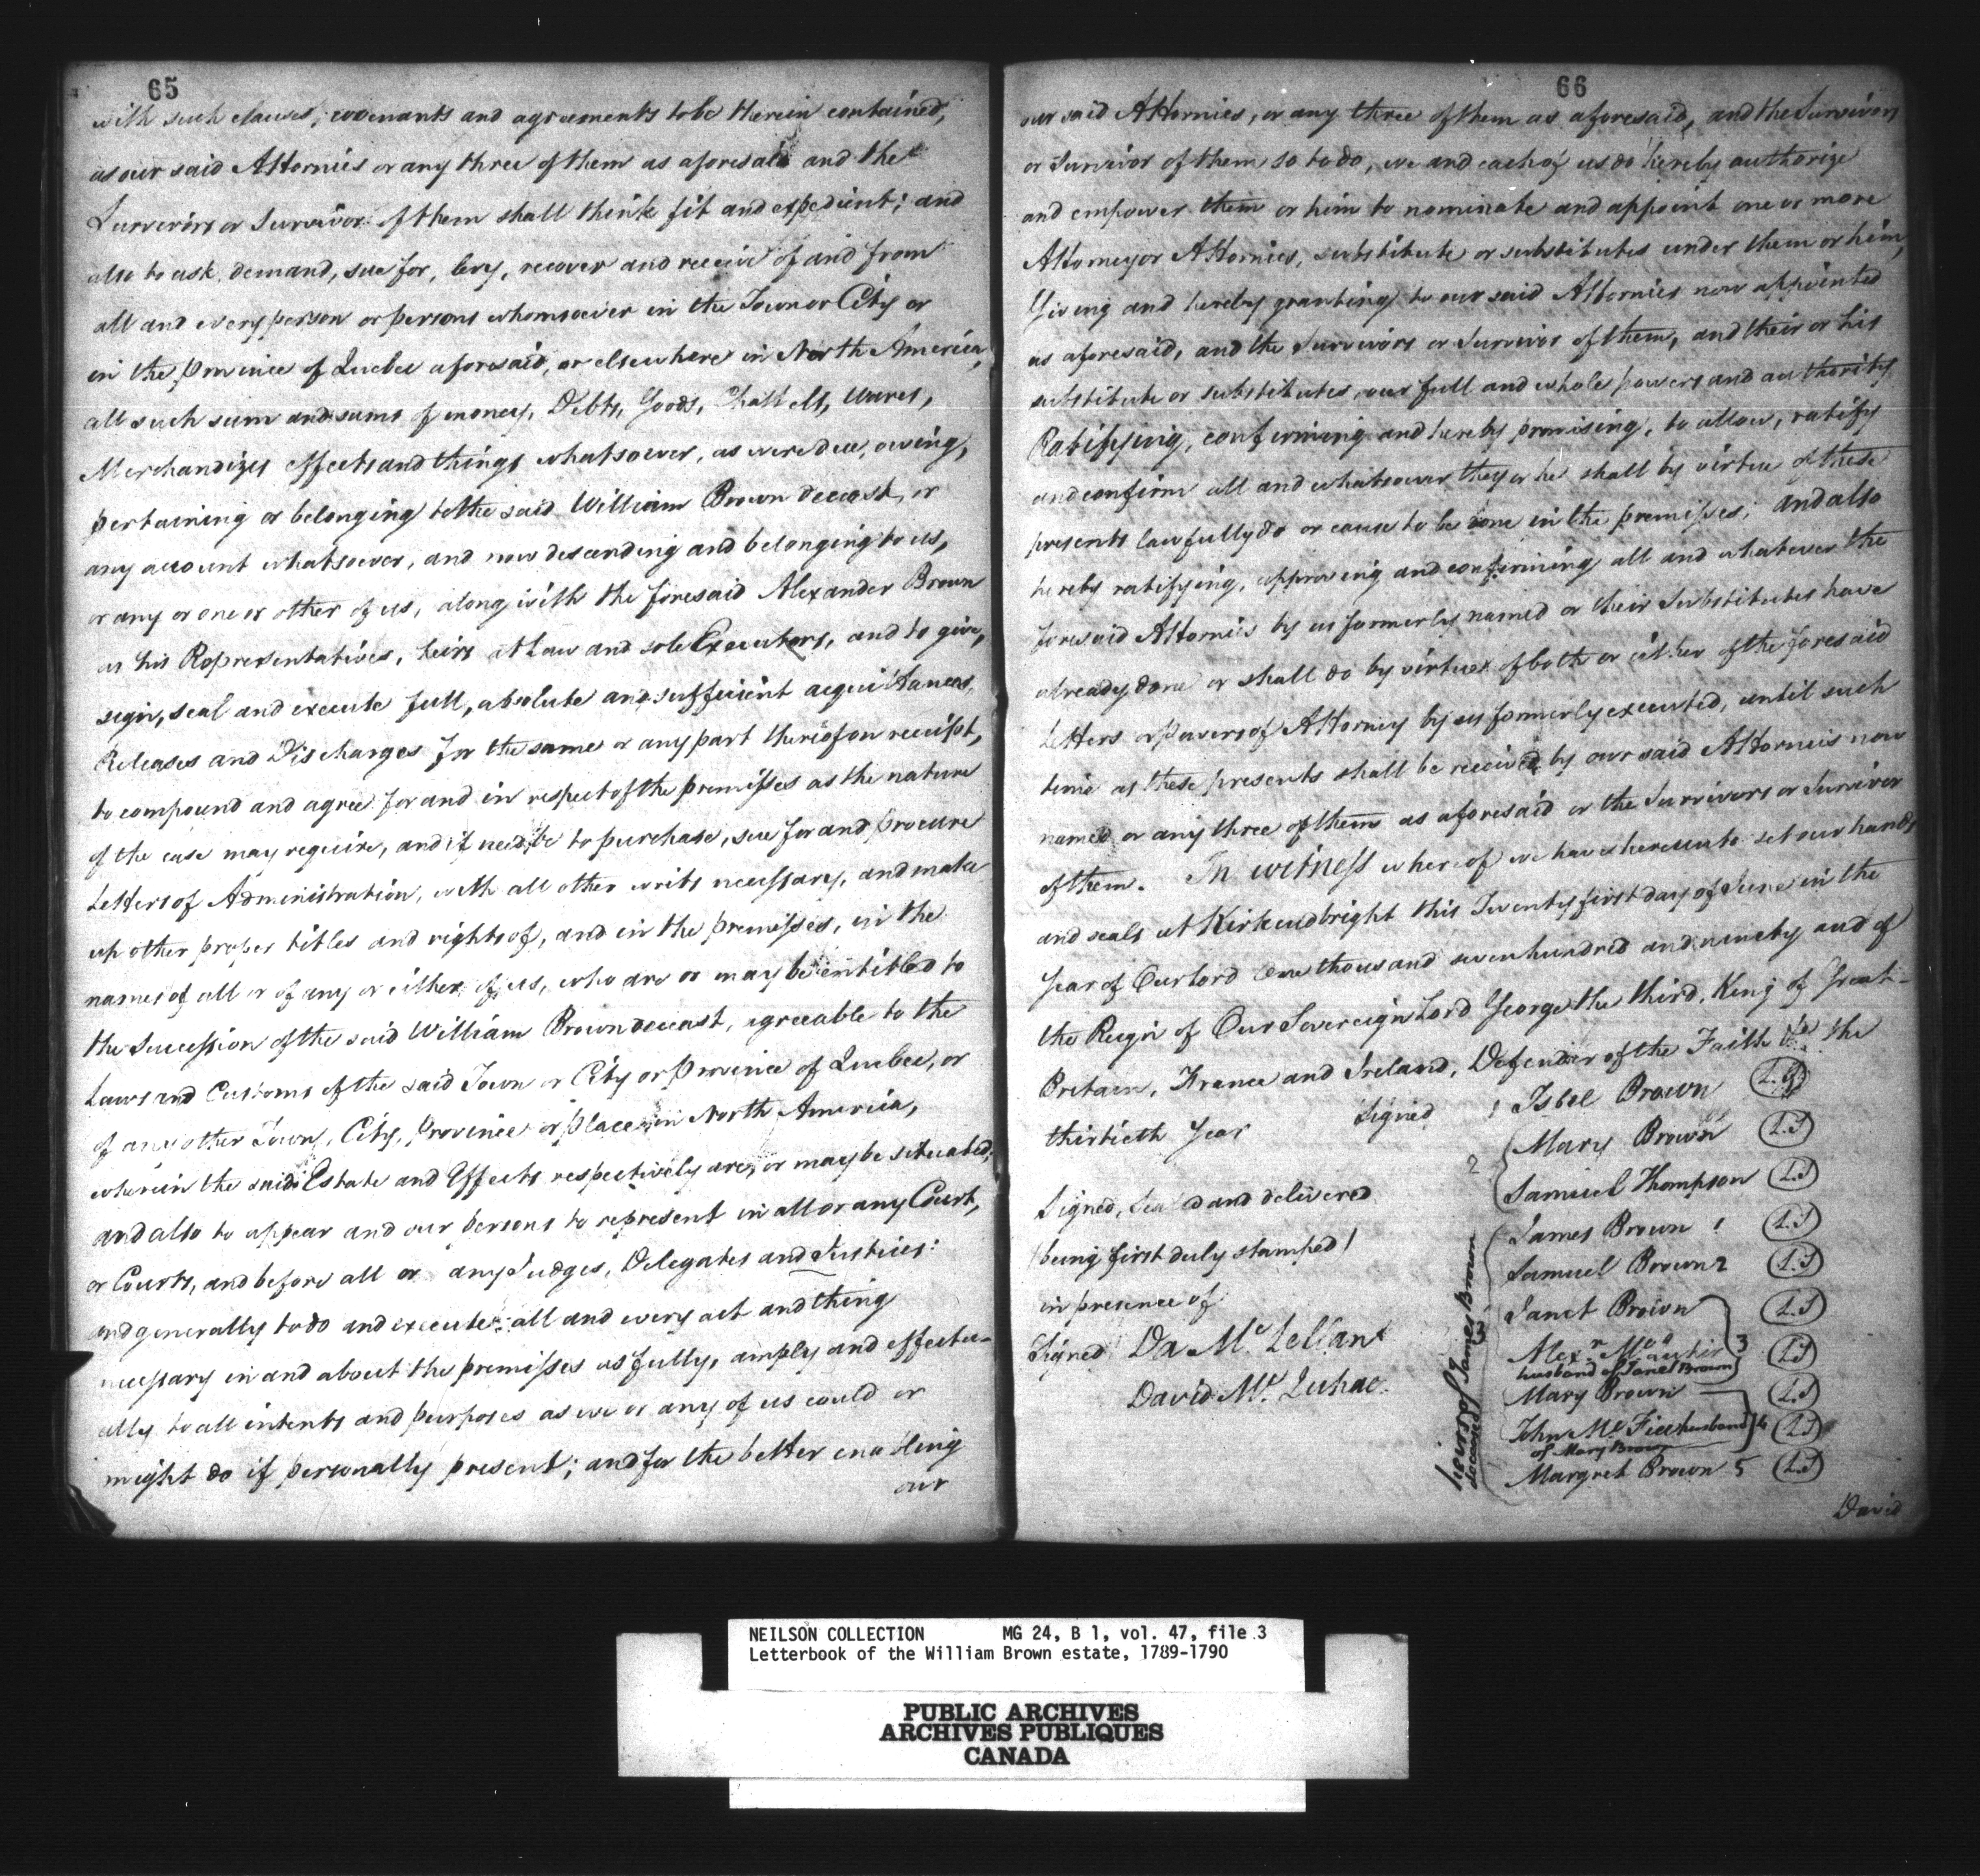 65
with such clauses, covenants and agreements to be therein contained,
as our said Attornies or any three of them as aforesaid and the
Survivors or Survivor of them shall think fit and expedient; and
also to ask, demand, sue for, levy, recover and receive of and from
all and every person or persons whomsoever in the Town or City or
in the province of Quebec aforesaid, or elsewhere in North America,
all such sum and sums of money, Debts, Goods, Chattels, wares,
Merchandizes effects and things whatsoever, as were due, owing,
pertaining or belonging to the said William Brown deceast, or
any account whatsoever, and now descending and belonging to us,
or any or one or other of us, along with the foresaid Alexander Brown
as his Representatives, heirs at Law and sole Executors, and to give,
sign, seal and execute full, absolute and sufficient acquittances,
Releases and Discharges for the same or any part thereof on receipt,
to compound and agree for and in respect of the premisses as the nature
of the case may require, and if need be to purchase, sue for and procure
Letters of Administration, with all other writs necessary, and make
up other proper titles and rights of, and in the premisses, in the
names of all or of any or either of us, who are or may be intitled to
the Succession of the said William Brown deceast, agreeable to the
Laws and Customs of the said Town or City or Province of Quebec, or
of any other Town, City, Province or place in North America,
wherein the said Estate and Effects respectively are, or may be situated;
and also to appear and our persons to represent in all or any Court,
or Courts, and before all or any Judges, Delegates and Justices:
and generally to do and execute all and every act and thing
necessary in and about the premisses as fully, amply and effectu-
ally to all intents and purposes as we or any of us could or
might do if personally present; and for the better enabling
our
66
our said Attornies, or any three of them as aforesaid, and the Survivors
or Survivor of them so to do, we and each of us do hereby authorize
and empower them or him to nominate and appoint one or more
Attorney or Attornies, substitute or substitutes under them or him,
Giving and hereby granting to our said Attornies now appointed
as aforesaid, and the Survivors or Survivor of them, and their or his
substitute or substitutes, our full and whole powers and authority
Ratifying, confirming and hereby promising, to allow, ratify
and confirm all and whatsoever they or he shall by virtue of these
presents lawfully do or cause to be done in the premisses; and also
hereby ratifying, approving and confirming all and whatever the
foresaid Attornies by us formerly named or their Substitutes have
already done or shall do by virtue of both or either of the foresaid
Letters or powers of Attorney by us formerly executed, until such
time as these presents shall be received by our said Attornies now
named or any three of them as aforesaid or the Survivors or Survivor
of them. In witness whereof we have hereunto set our hands
and seals at Kirkcudbright this Twenty first day of June in the
Year of Our Lord One thousand seven hundred and ninety and of
the Reign of Our Sovereign Lord George the third, King of Great-
Britain, France and Ireland, Defender of the Faith &ca the
thirtieth Year Signed 1 Isbel Brown L.S
2 Mary Brown L.S
Samuel Thompson L.S
Signed, Sealed and delivered
(being first duly stamped)
in presence of
Signed Da Mc Lellan
David Mc
heirs of James Brown
deceased 3
James Brown 1 L.S
Samuel Brown 2 L.S
Janet Brown L.S
Alexr 3 L.S
husband of Janet Brown
Mary Brown L.S
John Mc husband 4 L.S
of Mary Brown
Margret Brown 5 L.S
David
NEILSON COLLECTION MG 24, B 1, vol. 47, file 3
Letterbook of the William Brown estate, 1789-1790
PUBLIC ARCHIVES
ARCHIVES PUBLIQUES
CANADA